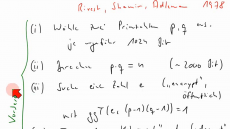 Rivest, Shamir, Adleman 1978
(i) Wähle zwei Primzahlen p, q mit
je ungefähr 1024 Bit
(ii) Berechne p.q = n (~2000 Bit)
(iii) Suche eine Zahl e ("encrypt",
öffentlich)
mit ggT(e, (p-1)(q-1)) = 1